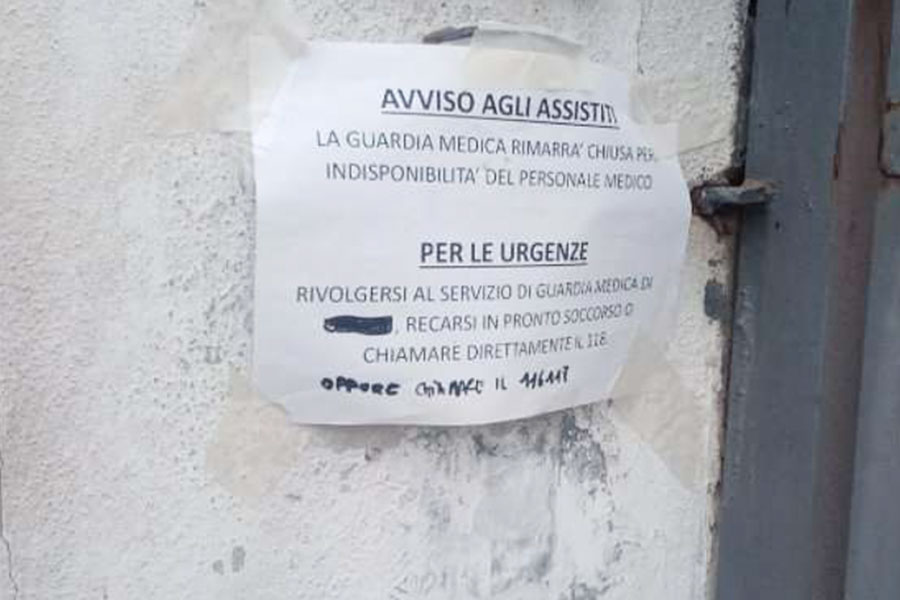 AVVISO AGLI ASSISTITI
LA GUARDIA MEDICA RIMARRA' CHIUSA PER
INDISPONIBILITA' DEL PERSONALE MEDICO
PER LE URGENZE
RIVOLGERSI AL SERVIZIO DI GUARDIA MEDICA DI
, RECARSI IN PRONTO SOCCORSO O
CHIAMARE DIRETTAMENTE IL 118.
OPPURE CHIAMARE IL 116117